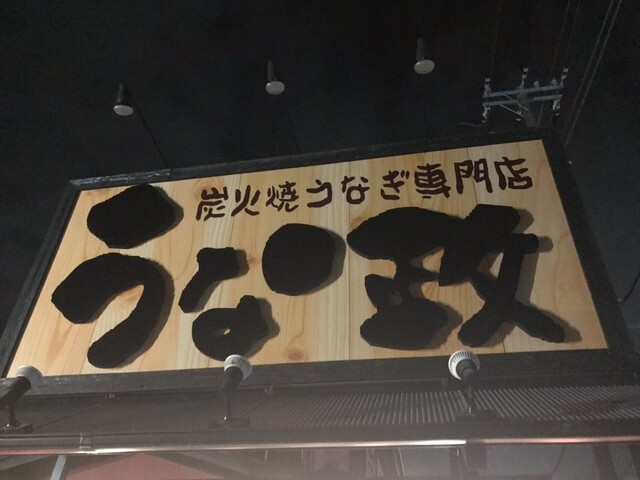 炭火焼うなぎ専門店
うな政